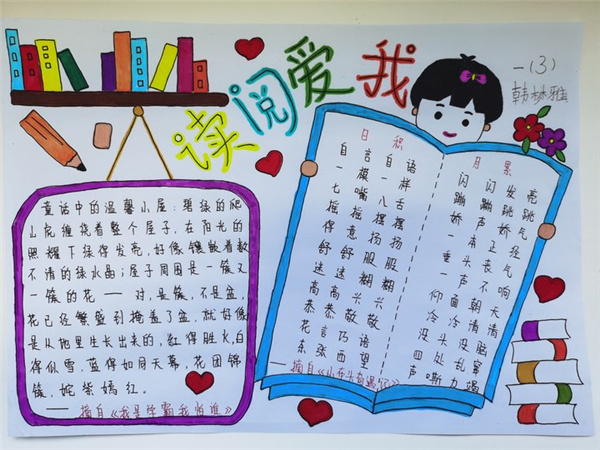 我爱阅读
一(3)
韩林雅
童话中的温馨小屋:碧绿的爬
山虎缠绕着整个屋子,在阳光的
照耀下绿得发亮,好像镶嵌着数
不清的绿水晶;屋子周围是一簇又
一簇的花——对,是簇,不是盆,
花已经繁盛到掩盖了盆,就好像
是从地里生长出来的,红得胜火,白
得似雪,蓝得如同天幕,花团锦
簇,姹紫嫣红。
——摘自《我是学霸我怕谁》
日积
自言自语
一模一样
七嘴八舌
摇摇摆摆
得意扬扬
舒舒服服
迷迷糊糊
高高兴兴
恭恭敬敬
花言巧语
东张西望
——摘自《小布头奇遇记》
月累
闪闪发亮
蹦蹦跳跳
娇声娇气
一本正经
垂头丧气
一声不响
仰面朝天
冷冷清清
没头没脑
四处乱窜
声嘶力竭